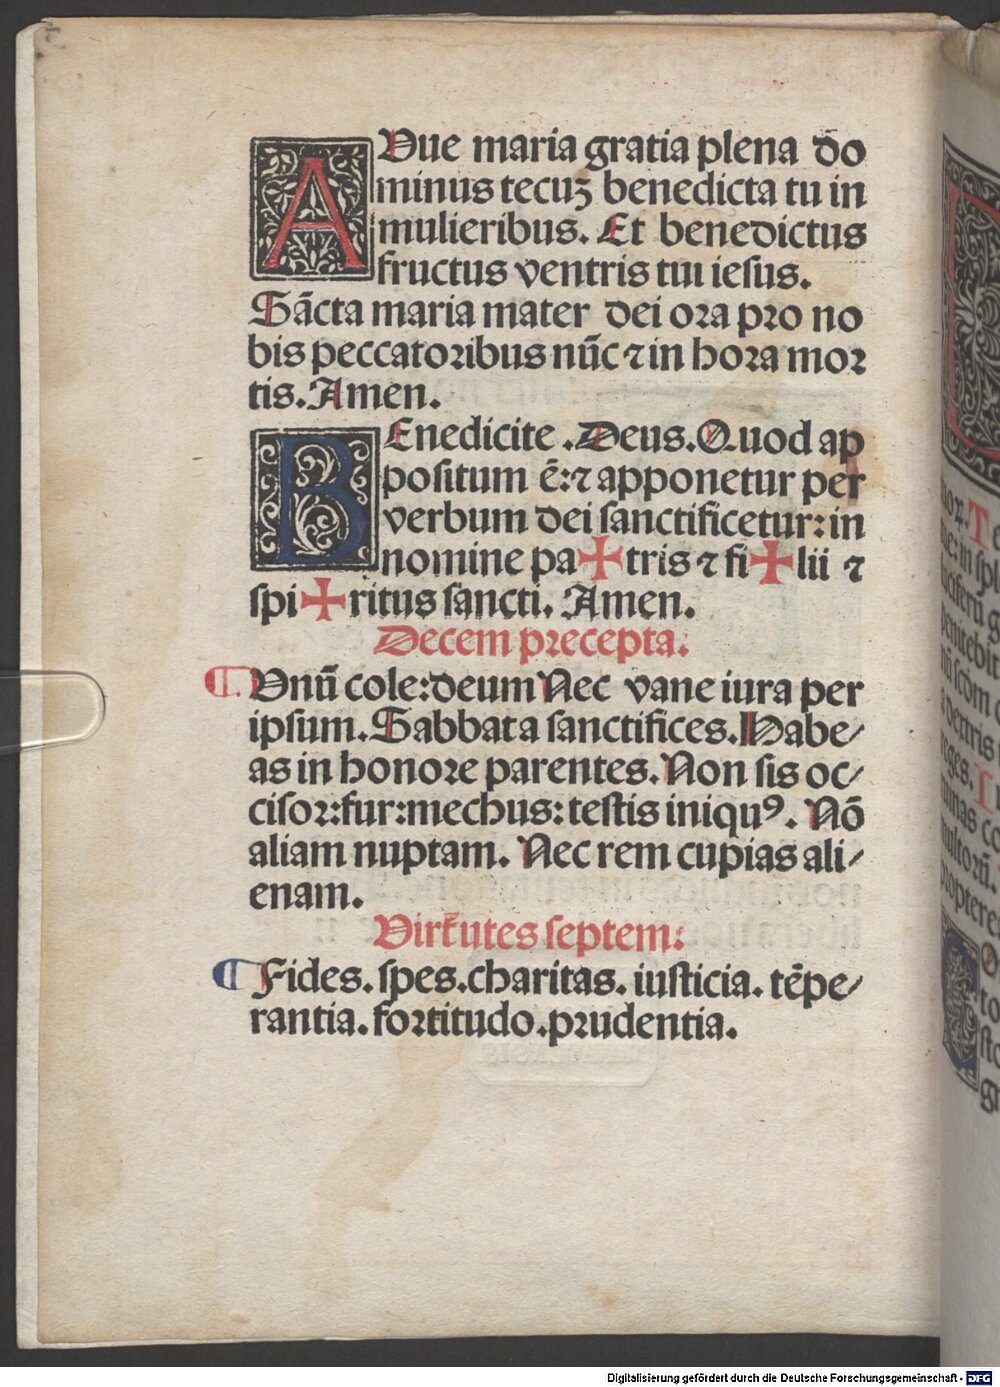 AVue maria gratia plena do
minus tecuʒ benedicta tu in
mulieribus. Et benedictus
fructus ventris tui iesus.
Sācta maria mater dei ora pro no
bis peccatoribus nūc ⁊ in hora mor
tis. Amen.
BEnedicite .Deus. Quod ap
positum ē: ⁊ apponetur per
verbum dei sanctificetur: in
nomine pa✠tris ⁊ fi✠lii ⁊
spi✠ritus sancti. Amen.
Decem precepta.
¶ Vnū cole: deum Nec vane iura per
ipsum. Sabbata sanctifices. Habe/
as in honore parentes. Non sis oc/
cisor: fur: mechus: testis iniquꝰ. Nō
aliam nuptam. Nec rem cupias ali/
enam.
Virtutes septem:
¶ Fides. spes. charitas. iusticia. tēpe/
rantia. fortitudo. prudentia.
Digitalisierung gefördert durch die Deutsche Forschungsgemeinschaft - DFG